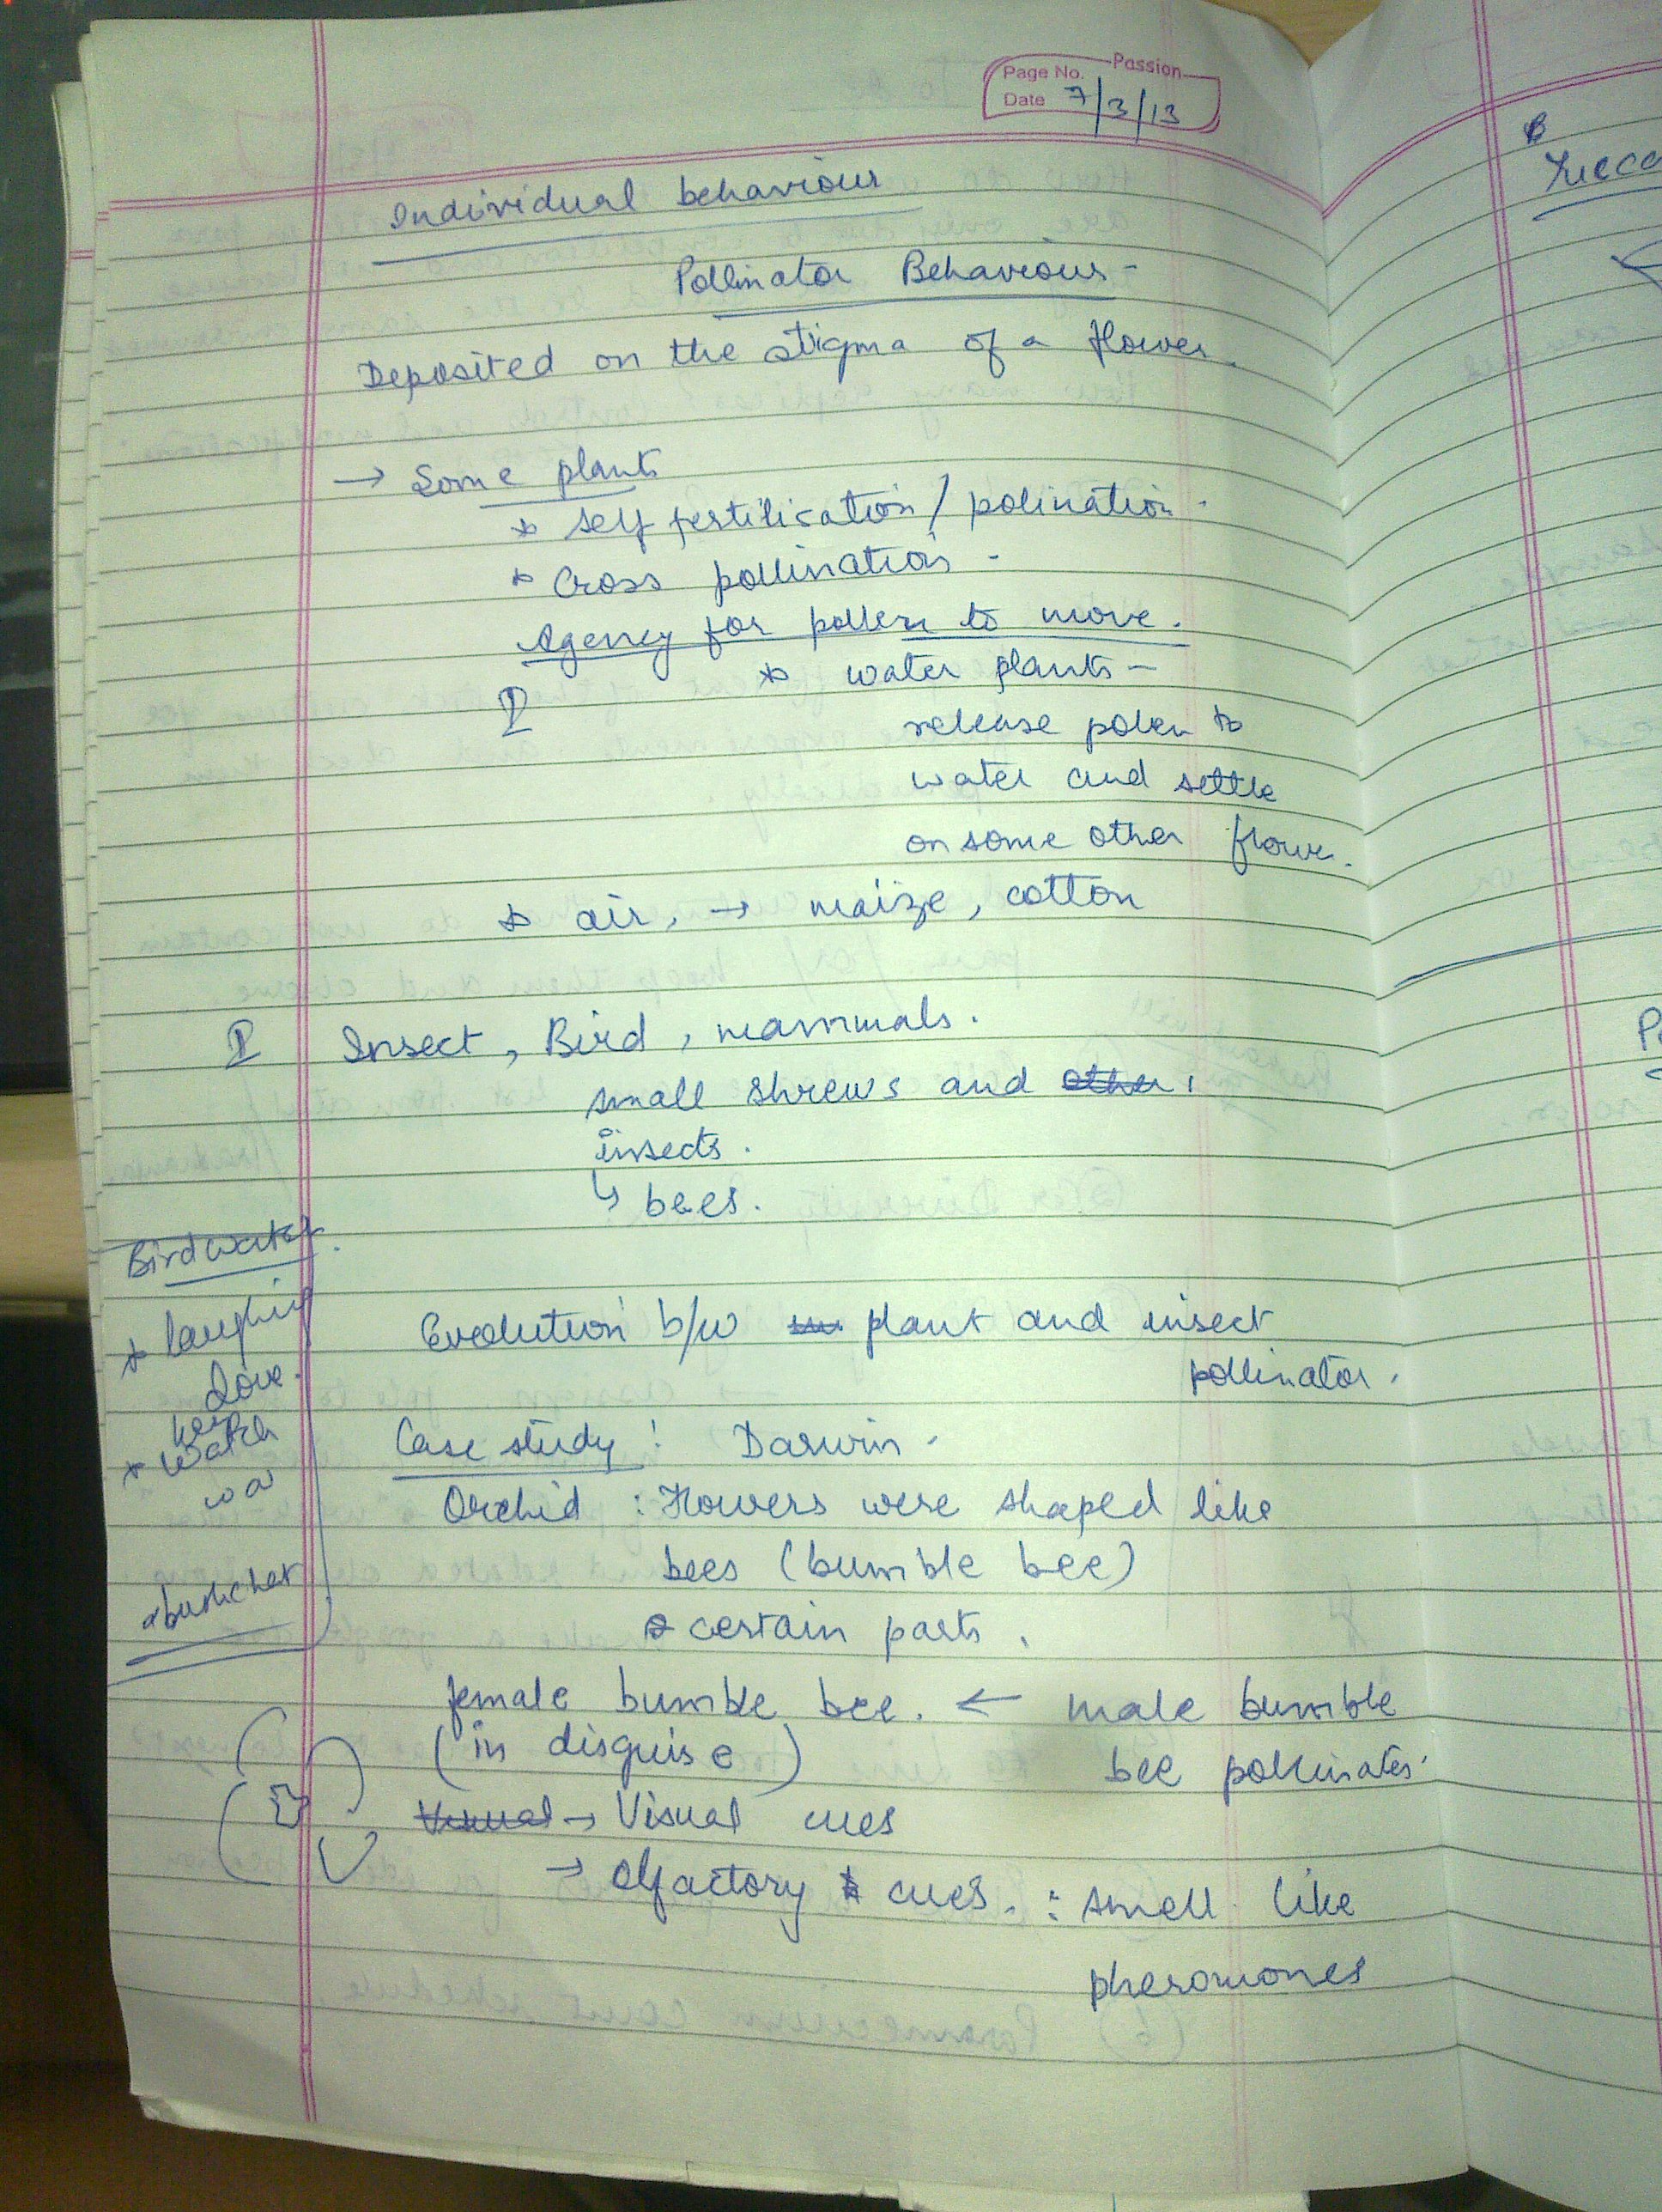 Passion
Page No.
Date 7/3/13
Individual behaviour
Pollinator Behaviour -
Deposited on the stigma of a flower.
→ Some plants
* self fertilication / polination.
* Cross pollination -
Agency for pollen to move.
* water plants -
release polen to
water and settle
on some other flower.
* air, → maize, cotton
Insect, Bird, mammals.
small shrews and other,
insects.
↳ bees.
Birdwatch.
* laughing
dove.
Evolution b/w plant and insect
pollinator.
Case study: Darwin.
Orchid : Flowers were shaped like
bees (bumble bee)
certain parts.
female bumble bee. ← male bumble
(in disguise) bee pollinates.
Visual → Visual cues
→ Olfactory cues. : smell like
pheromones